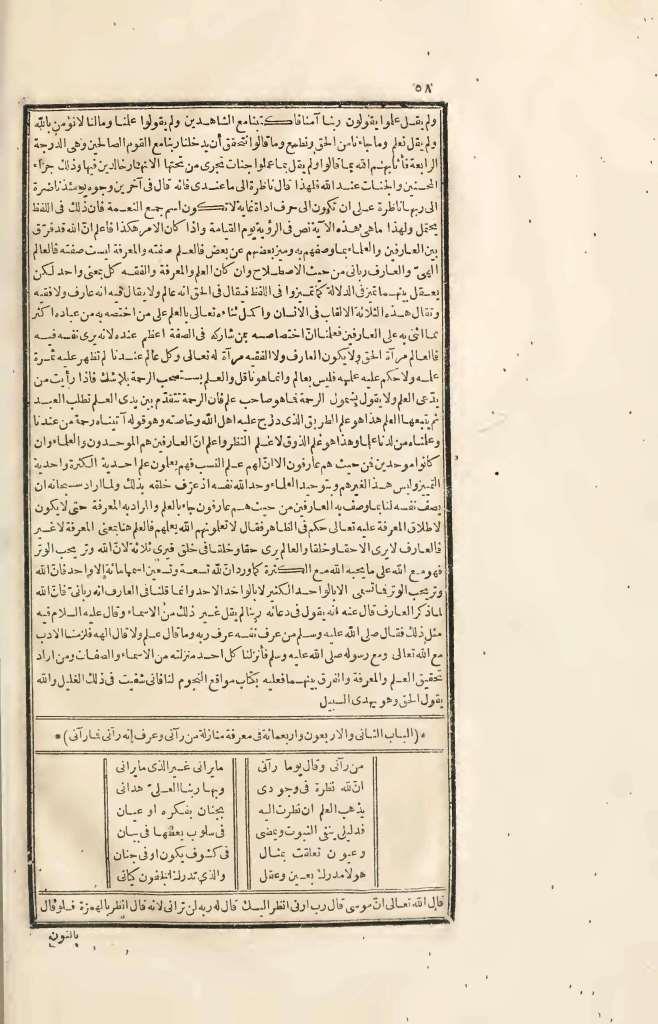 ٥٨
ولم يقل علموا يقولون ربنا آمنا فاكتبنا مع الشاهدين ولم يقولوا علمنا وما لنا لا نؤمن بالله
ولم يقل نعلم وما جاءنا من الحق ونطمع وما قالوا نتحقق أن يدخلنا ربنا مع القوم الصالحين وهى الدرجة
الرابعة فأثابهم الله بما قالوا ولم يقل بما علموا جنات تجرى من تحتها الانهار خالدين فيها وذلك جزاء
المحسنين والجنات عند الله فلهذا قال ناظرة الى ما عندى فانه قال فى آخرين وجوه يومئذ ناضرة
الى ربها ناظرة على ان تكون الى حرف اداة غاية لا تكون اسم جمع النعمة فان ذلك فى اللفظ
يحتمل ولهذا ما هى هذه الآية نص فى الرؤية يوم القيامة واذا كان الامر هكذا فاعلم انّ الله قد فرّق
بين العارفين والعلماء بما وصفهم به وميز بعضهم عن بعض فالعلم صفته والمعرفة ليست صفته فالعالم
الهىّ والعارف ربانى من حيث الاصطلاح وان كان العلم والمعرفة والفقه كله بمعنى واحد لكن
يعقل بينهما تميز فى الدلالة كما تميزوا فى اللفظ فيقال فى الحق انه عالم ولا يقال فيه انه عارف ولا فقيه
وتقال هذه الثلاثة الالقاب فى الانسان واكمل ثناءه تعالى بالعلم على من اختصه به من عباده اكثر
مما اثنى به على العارفين فعلمنا انّ اختصاصه بمن شاركه فى الصفة اعظم عنده لانه يرى نفسه فيه
فالعالم مرآة الحق ولا يكون العارف ولا الفقيه مرآة له تعالى وكل عالم عندنا لم تظهر عليه ثمرة
علمه ولا حكم عليه علمه فليس بعالم وانما هو ناقل والعلم يستصحب الرحمة بلا شك فاذا رأيت من
يدّعى العلم ولا يقول بشمول الرحمة فما هو صاحب علم فان الرحمة تتقدّم بين يدى العلم تطلب العبد
ثم يتبعها العلم هذا هو علم الطريق الذى درج عليه اهل الله وخاصته وهو قوله آتيناه رحمة من عندنا
وعلمناه من لدنا علما وهذا هو علم الذوق لا علم النظر واعلم انّ العارفين هم الموحدون والعلماء وان
كانوا موحدين فمن حيث هم عارفون الا انّ لهم علم النسب فهم يعلمون علم احدية الكثرة واحدية
التمييز وليس هذا لغيرهم وبتوحيد العلماء وحد الله نفسه اذ عرّف خلقه بذلك ولما اراد سبحانه ان
يصف نفسه لنا بما وصف به العارفين من حيث هم عارفون جاء بالعلم والمراد به المعرفة حتى لا يكون
لاطلاق المعرفة عليه تعالى حكم فى الظاهر فقال لا تعلمونهم الله يعلمهم فالعلم هنا بمعنى المعرفة لا غير
فالعارف لا يرى الا حقا وخلقا والعالم يرى حقا وخلقا فى خلق فيرى ثلاثة لانّ الله وتر يحب الوتر
فهو مع الله على ما يحبه الله مع الكثرة كما ورد انّ لله تسعة وتسعين اسما مائة الا واحد فانّ الله
وتر يحب الوتر فما تسمى الا بالواحد الكثير لا بالواحد الاحد وانما قلنا فى العارف انه ربانىّ فانّ الله
لما ذكر العارف قال عنه انه يقول فى دعائه ربنا لم يقل غير ذلك من الاسماء وقال عليه السلام فيه
مثل ذلك فقال صلى الله عليه وسلم من عرف نفسه عرف ربه وما قال علم ولا قال الهه فلزمنا الادب
مع الله تعالى ومع رسوله صلى الله عليه وسلم فأنزلنا كل احد منزلته من الاسماء والصفات ومن اراد
تحقيق العلم والمعرفة والفرق بينهما فعليه بكتاب مواقع النجوم لنا فانى شفيت فى ذلك الغليل والله
يقول الحق وهو يهدى السبيل
* (الباب الثانى والاربعون واربعمائة فى معرفة منازلة من رآنى وعرف انه رآنى فما رآنى) *
من رآنى وقال يوما رآنى ما يرانى غير الذى ما يرانى
انّ لله نظرة فى وجودى وبها ربنا العلىّ هدانى
يذهب العلم ان نظرت اليه بجنان بفكره او عيان
فدليلى ينفى الثبوت ويمضى فى سلوب بعطها فى بيان
وعيون تعلقت بمثال فى كشوف يكون او فى جنان
هو لا مدرك بعين وعقل والذى تدركه الظنون كيانى
قال الله تعالى انّ موسى قال رب ارنى انظر اليك قال له ربه لن ترانى لانه قال انظر بالهمزة فلو قال
بالنون